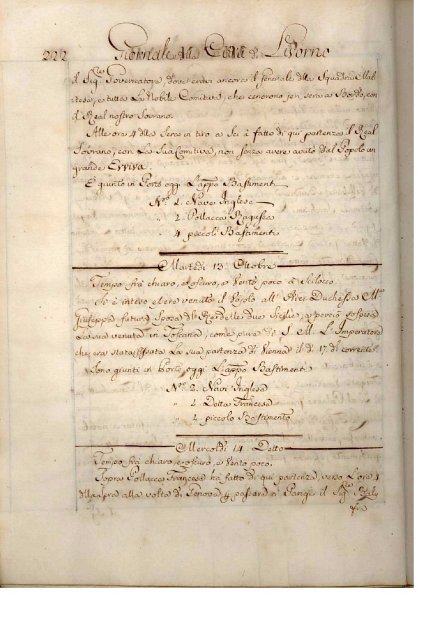 222 Giornale della Città di Livorno
il Sig.re Governatore, dove eravi ancora il Generale della Squadra Mal
tese, e tutta la Nobile Comitiva, che cenorono jeri sera a Bordo, con
il Real nostro Sovrano.
Alle ore 4 della sera in circa a Sei è fatto di qui partenza il Real
Sovrano, con la Sua Comitiva, non senza avere avuto dal Popolo un
grande Evviva.
È giunto in Porto oggi l'appo Bastimenti
N.o 1. Nave Inglese
2. Pollacca Ragusea
4. piccoli Bastimenti
Martedì 13: Ottobre
Tempo frà chiaro, e oscuro, e Vento poco a Scilocco.
Si è inteso essere venuto il Vajolo all' Arci Duchessa M.a
Giuseppa futura Sposa del Rè delle due Sicilie, e perciò sospesa
la sua venuta in Toscana, come pure di S. M. l'Imperatore
che era stata fissata la sua partenza di Vienna il dì 17. di corrente.
Sono giunti in Porto, oggi l'appo Bastimenti
N.o 2. Navi Inglesi
1. Detta Francese
2. piccolo Bastimento
Mercoldì 14. Detto
Tempo frà chiaro, e oscuro, e Vento poco.
Sopra Pollacca Francese hà fatto di qui partenza, verso l'ora 1
alla volta di Genova p. passare a Parigi il Sig.re